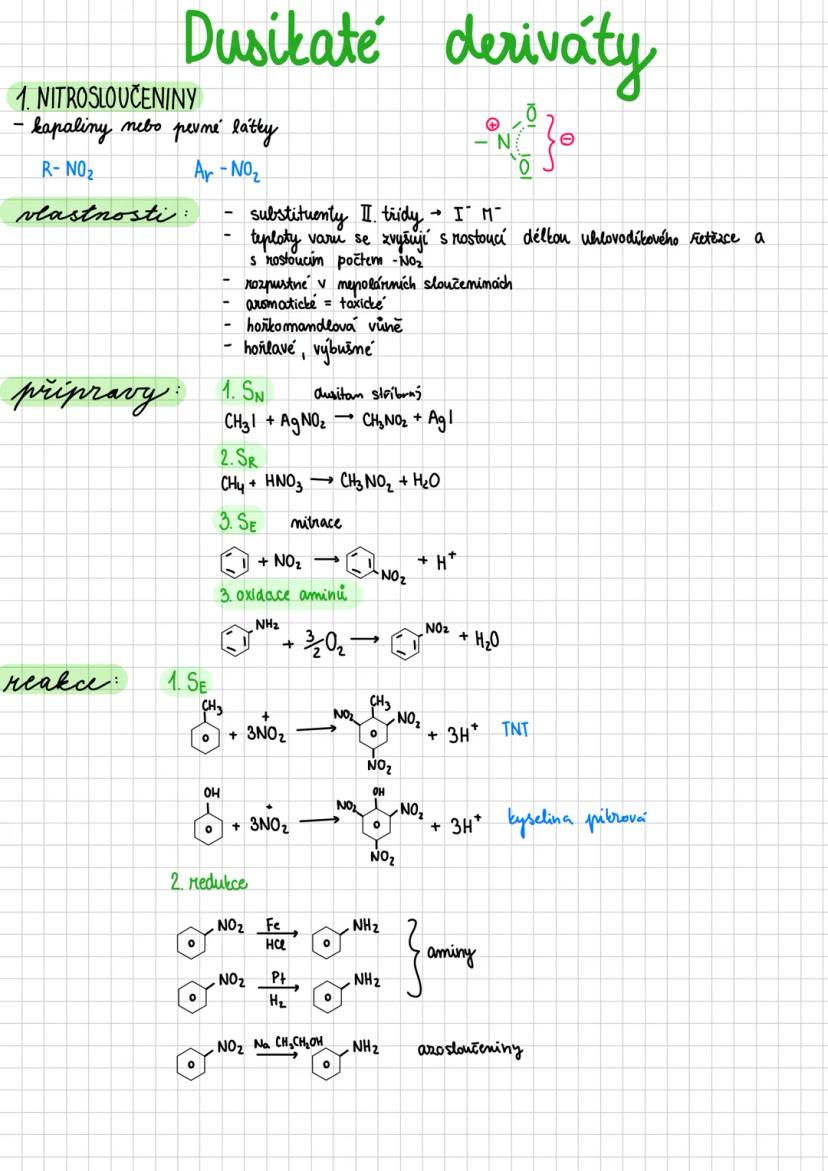 Dusíkaté deriváty
1. NITROSLOUČENINY
- kapaliny nebo pevné látky
R-NO₂ Ar-NO₂
⊕ – N O O } ⊖
vlastnosti:
- substituenty II. třídy → I⁻ M⁻
- teploty varu se zvyšují s rostoucí délkou uhlovodíkového řetězce a
s rostoucím počtem -NO₂
- rozpustné v nepolárních sloučeninách
- aromatické = toxické
- hořkomandlová vůně
- hořlavé, výbušné
přípravy:
1. SN dusitan stříbrný
CH₃I + AgNO₂ → CH₃NO₂ + AgI
2. SR
CH₄ + HNO₃ → CH₃NO₂ + H₂O
3. SE nitrace
+ NO₂ → NO₂ + H⁺
3. oxidace aminů
NH₂ + 3/2 O₂ → NO₂ + H₂O
reakce:
1. SE
CH₃ + 3NO₂⁺ → CH₃ NO₂ NO₂ NO₂ + 3H⁺ TNT
OH + 3NO₂⁺ → OH NO₂ NO₂ NO₂ + 3H⁺ kyselina pikrová
2. redukce
NO₂ Fe HCl → NH₂
} aminy
NO₂ Pt H₂ → NH₂
NO₂ Na CH₃CH₂OH → NH₂ azosloučeniny